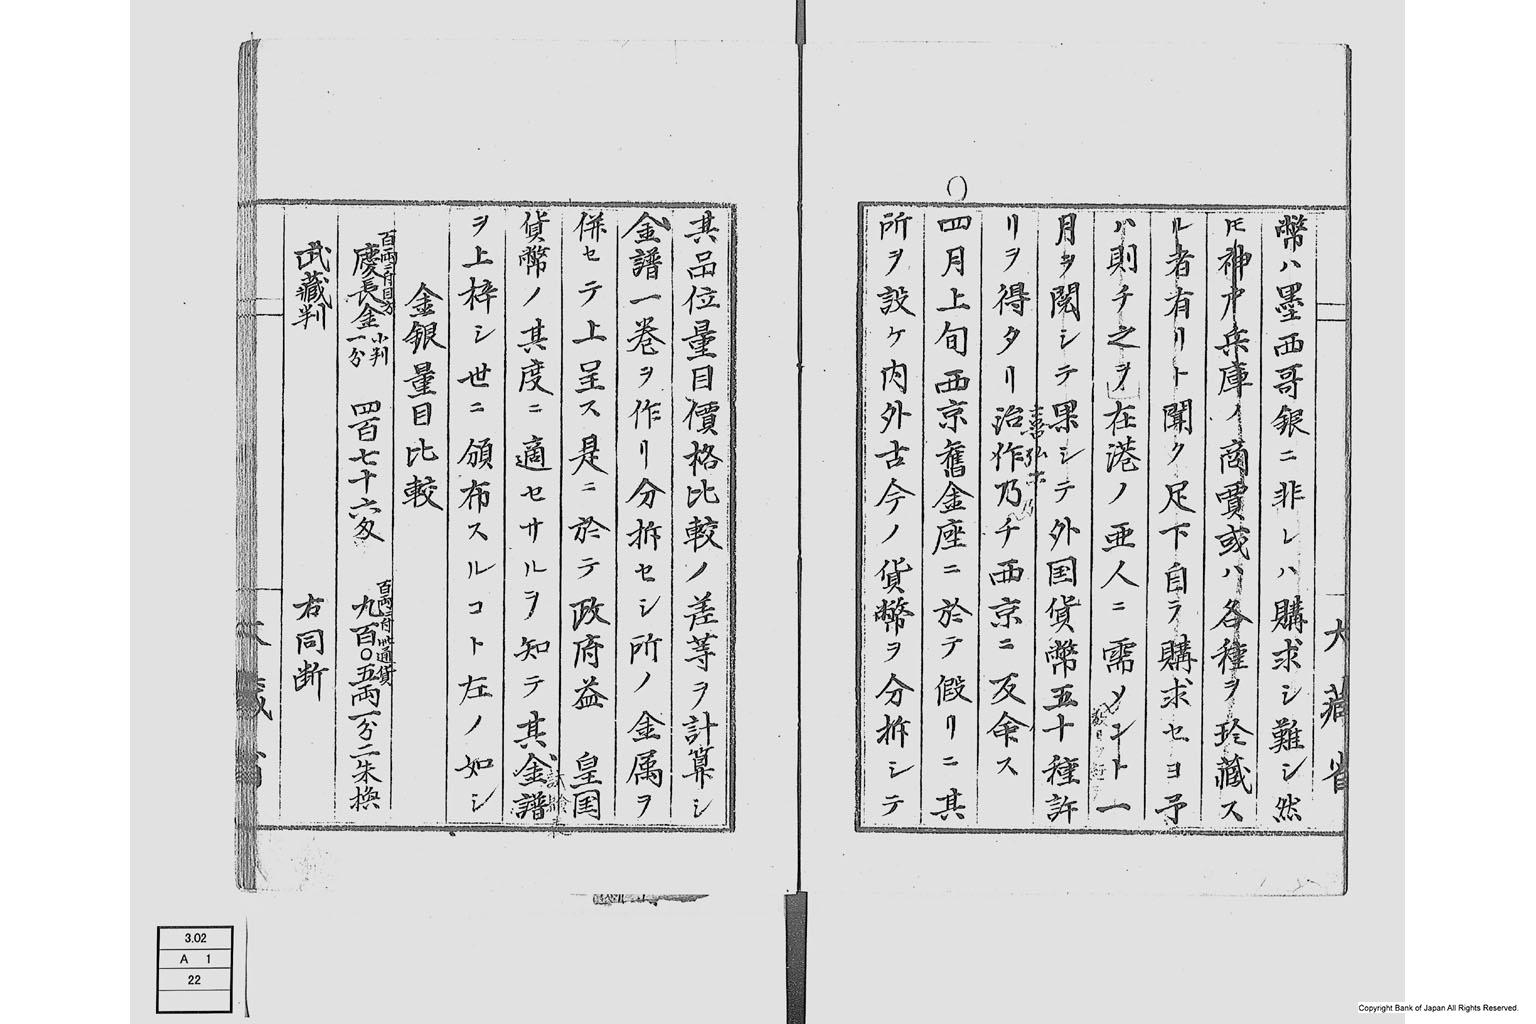 幣ハ墨西哥銀ニ非レハ購求シ難シ然
𪜈神戸兵庫ノ商賈或ハ各種ヲ珍藏ス
ル者有リト聞ク足下自ラ購求セヨ予
ハ則チ之ヲ在港ノ亜人ニ需メント一
月ヲ閲シテ果シテ外囯貨幣五十種許
リヲ得タリ治作乃チ西京ニ反命ス
四月上旬西京舊金座ニ於テ假リニ其
所ヲ設ケ内外古今ノ貨幣ヲ分拆シテ
大藏省
其品位量目價格比較ノ差等ヲ計算シ
金譜一巻ヲ作リ分拆セシ所ノ金属ヲ
併セテ上呈ス是ニ於テ政府益 皇囯
貨幣ノ其度ニ適セサルヲ知テ其金譜
ヲ上梓シ世ニ頒布スルコト左ノ如シ
金銀量目比較
百両ニ付目方
慶長金 小判 一分 四百七十六匁
百両ニ付此通貨
九百〇五両一分二朱換
武藏判 右同断
3.02
A 1
22
Copyright Bank of Japan All Rights Reserved.